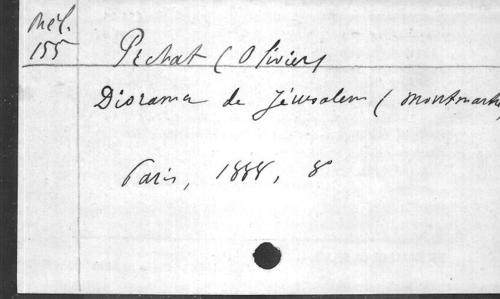 Mél.
155
Pechat (Olivier)
Diorama de Jérusalem (Montmartre
Paris, 1888, 8°